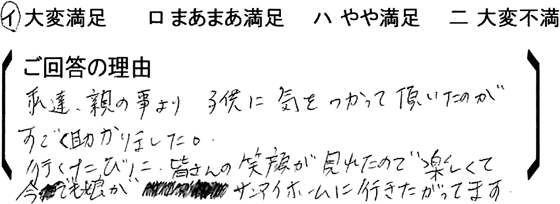 イ 大変満足 ロ まあまあ満足 ハ やや満足 ニ 大変不満
ご回答の理由
私達、親の事より 子供に 気をつかって頂いたのが
すごく助かりました。
行くたびに、皆さんの笑顔が見れたので楽しくて
今でも娘が サンアイホームに行きたがってます。